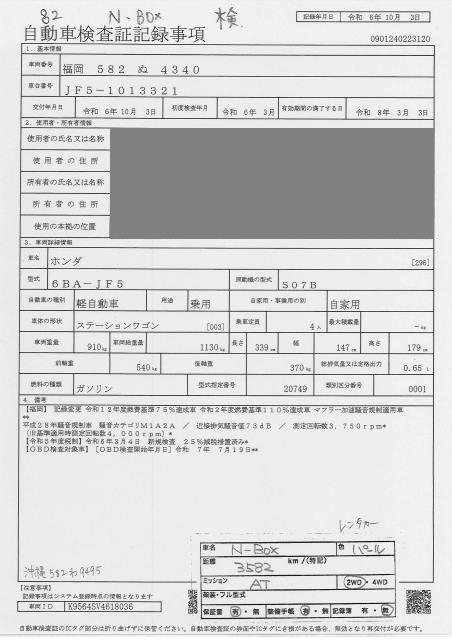 82 N-BOX 検
記録年月日 令和 6年10月 3日
自動車検査証記録事項
0901240223120
1．基本情報
車両番号 福岡 582 ぬ 4340
車台番号 JF5-1013321
交付年月日 令和 6年10月 3日 初度検査年月 令和 6年 3月 有効期間の満了する日 令和 8年 3月 3日
2．使用者・所有者情報
使用者の氏名又は名称
使用者の住所
所有者の氏名又は名称
所有者の住所
使用の本拠の位置
3．車両詳細情報
車名 ホンダ [296]
型式 6BA-JF5 原動機の型式 S07B
自動車の種別 軽自動車 用途 乗用 自家用・事業用の別 自家用
車体の形状 ステーションワゴン [003] 乗車定員 4人 最大積載量 -kg
車両重量 910kg 車両総重量 1130kg 長さ 339cm 幅 147cm 高さ 179cm
前軸重 540kg 後軸重 370kg 総排気量又は定格出力 0.65 L
燃料の種類 ガソリン 型式指定番号 20749 類別区分番号 0001
4．備考
【福岡】 記録変更 令和12年度燃費基準75％達成車 令和2年度燃費基準110％達成車 マフラー加速騒音規制適用車
**
平成28年騒音規制車 騒音カテゴリM1A2A ／ 近接排気騒音値73dB ／ 測定回転数3，750rpm*
（旧基準適用時測定回転数4，000rpm）*
【令和5年度税制】令和6年3月4日 新規検査 25％減税措置済み*
【OBD検査対象車】［OBD検査開始年月日］令和 7年 7月19日**
レンタカー
車名 N-BOX 色 パール
距離 3582 km / (特記)
ミッション AT 2WD・4WD
架装・フル型式
保証書 有・無 整備手帳 有・無 記録簿 有・無
沖縄 582 わ 9495
【注意事項】
記録事項はシステム登録時点の情報となります
車両ID K9564SV4618036
自動車検査証のICタグ部分は折り曲げずに保管してください。自動車検査証の券面やICタグにき損がある場合、無効となり再交付が必要です。